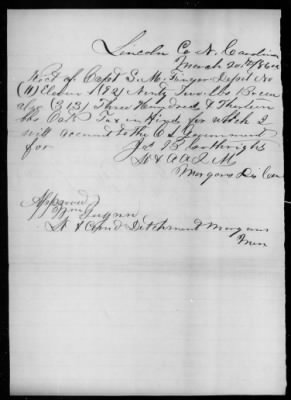 Lincoln Co N. Carolina
March 20th 186
Recd of Capt S. M. Finger Depot No
(11) Eleven (192) Ninty Two lbs Bacon
also (313) Three Hundred & Thirteen
lbs Oak Tax in Hoyd for which I
will account to the C S Government
for Jas B Courtwright
Lt & A A Q M
Morgans Div Cav
Approved
Wm Gwynn
Lt & Comd Detchment Morgans
Men